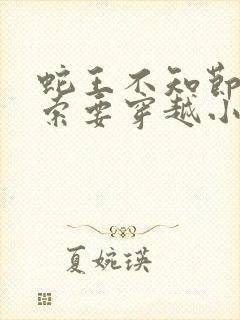 蛇王不知节
索要穿越小
夏婉瑛